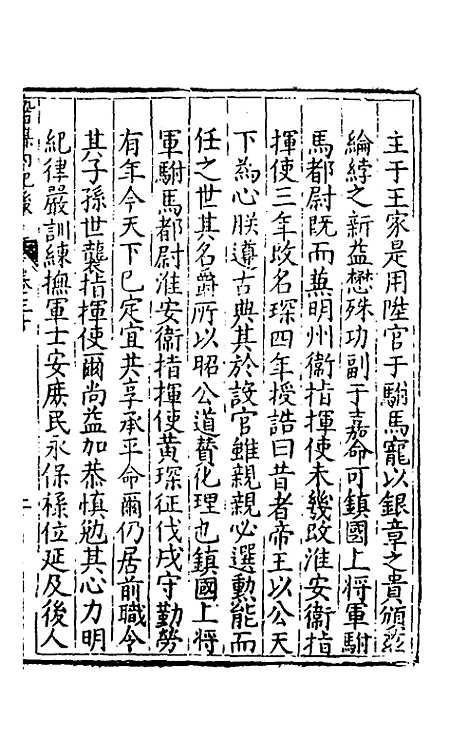 主于王家是用陞官于駙馬寵以銀章之貴頒
綸綍之新益懋殊功副于嘉命可鎮國上將軍駙
馬都尉既而兼明州衞指揮使未幾改淮安衞指
揮使三年改名琛四年授誥曰昔者帝王以公天
下為心朕遵古典其於設官雖親親必選勳能而
任之世其名爵所以昭公道贊化理也鎮國上將
軍駙馬都尉淮安衞指揮使黃琛征伐戍守勤勞
有年今天下已定宜共享承平命爾仍居前職令
其子孫世襲指揮使爾尚益加恭慎勉其心力明
紀律嚴訓練撫軍士安庶民永保祿位延及後人